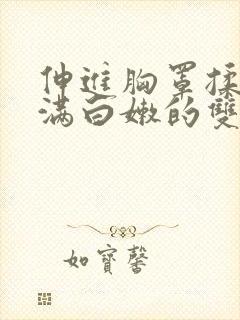 伸進胸罩揉
满白嫩的雙
如寶馨